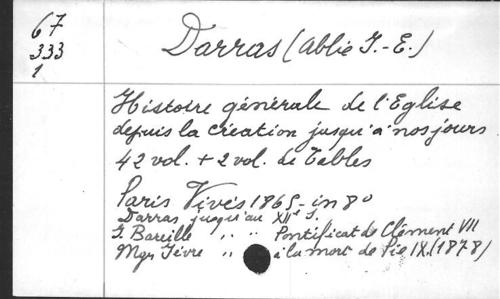 67
333
1
Darras (abbé J.-E.)
Histoire générale de l'Eglise
depuis la Création jusqu'à nos jours
42 vol. + 2 vol. de Tables
Paris Vivès 1865 - in 8°
Darras jusqu'au XIIe s.
J. Bareille " " Pontificat de Clément VII
Mgr Fèvre " à la mort de Pie IX. (1878)